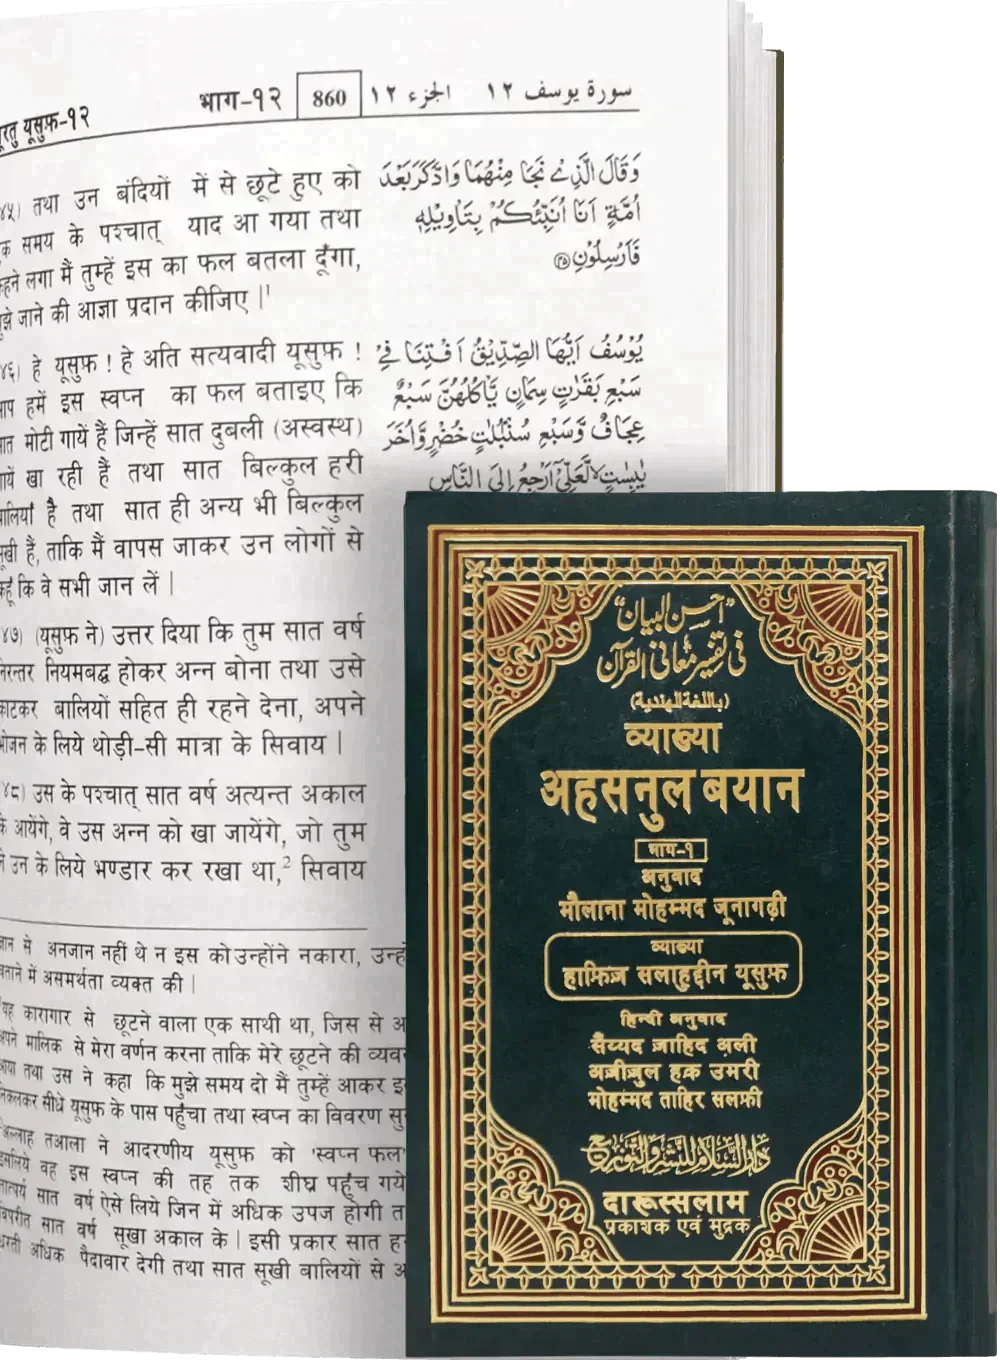 सूरतु यूसुफ़-१२
भाग-१२
860
الجزء ١٢
سورة يوسف ١٢
तथा उन बंदियों में से छूटे हुए को
समय के पश्चात् याद आ गया तथा
लगा मैं तुम्हें इस का फल बतला दूँगा,
जाने की आज्ञा प्रदान कीजिए |¹
وَقَالَ الَّذِي نَجَا مِنْهُمَا وَادَّكَرَ بَعْدَ
أُمَّةٍ أَنَا أُنَبِّئُكُمْ بِتَأْوِيلِهِ
فَأَرْسِلُونِ ﴿٤٥﴾
हे यूसुफ़ ! हे अति सत्यवादी यूसुफ़ !
हमें इस स्वप्न का फल बताइए कि
मोटी गायें हैं जिन्हें सात दुबली (अस्वस्थ)
खा रही हैं तथा सात बिल्कुल हरी
है तथा सात ही अन्य भी बिल्कुल
हैं, ताकि मैं वापस जाकर उन लोगों से
कि वे सभी जान लें |
يُوسُفُ أَيُّهَا الصِّدِّيقُ أَفْتِنَا فِي
سَبْعِ بَقَرَاتٍ سِمَانٍ يَأْكُلُهُنَّ سَبْعٌ
عِجَافٌ وَّسَبْعِ سُنْبُلَاتٍ خُضْرٍ وَّأُخَرَ
يٰبِسٰتٍ لَّعَلِّي أَرْجِعُ إِلَى النَّاسِ
(यूसुफ़ ने) उत्तर दिया कि तुम सात वर्ष
नियमबद्ध होकर अन्न बोना तथा उसे
बालियों सहित ही रहने देना, अपने
के लिये थोड़ी-सी मात्रा के सिवाय |
उस के पश्चात् सात वर्ष अत्यन्त अकाल
आयेंगे, वे उस अन्न को खा जायेंगे, जो तुम
उन के लिये भण्डार कर रखा था,² सिवाय
से अनजान नहीं थे न इस को उन्होंने नकारा,
में असमर्थता व्यक्त की |
कारागार से छूटने वाला एक साथी था, जिस से
मालिक से मेरा वर्णन करना ताकि मेरे छूटने की
तथा उस ने कहा कि मुझे समय दो मैं तुम्हें आकर
सीधे यूसुफ़ के पास पहुँचा तथा स्वप्न का विवरण
तआला ने आदरणीय यूसुफ़ को 'स्वप्न फल'
वह इस स्वप्न की तह तक शीघ्र पहुँच गये
सात वर्ष ऐसे लिये जिन में अधिक उपज होगी
सात वर्ष सूखा अकाल के | इसी प्रकार सात
अधिक पैदावार देगी तथा सात सूखी बालियों से
"احسن البيان"
في تفسير معاني القرآن
(باللغة الهندية)
व्याख्या
अहसनुल बयान
भाग-१
अनुवाद
मौलाना मोहम्मद जूनागढ़ी
व्याख्या
हाफ़िज़ सलाहुद्दीन यूसुफ़
हिन्दी अनुवाद
सैय्यद ज़ाहिद अली
अज़ीज़ुल हक़ उमरी
मोहम्मद ताहिर सलफ़ी
دار السلام للنشر والتوزيع
दारूस्सलाम
प्रकाशक एवं मुद्रक